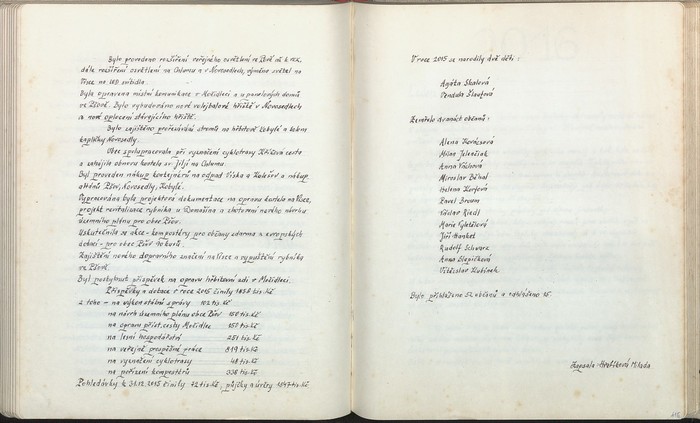 Bylo provedeno rozšíření veřejného osvětlení ve Pšově
dále rozšíření osvětlení na Chlumu a v Novosedlech, výměna světel na
Vísce na LED svítidla.
Byla opravena místní komunikace v Mošidlci a u panelových domů
ve Pšově. Bylo vybudováno nové volejbalové hřiště v Novosedlech
a nové oplocení stávajícího hřiště.
Bylo zajištěno prořezávání stromů na hřbitově Kobylé a kolem
kapličky Novosedly.
Obec spolupracovala při vyznačení cyklotrasy Křížová cesta
a zahájila obnovu kostela sv. Jiljí na Chlumu.
Byl proveden nákup kontejnérů na odpad Víska a Kolešov a nákup
altánů Pšov, Novosedly, Kobylé.
Vypracována byla projektová dokumentace na opravu kostela na
projekt revitalizace rybníka u Domašína a zhotovení nového návrhu
územního plánu pro obec Pšov.
Uskutečnila se akce - kompostéry pro občany zdarma z evropských
dotací - pro obec Pšov
Zajištění nového dopravního značení na lince a vypuštění rybníka
ve Pšově.
Byl poskytnut příspěvek na opravu hřbitovní zdi v Mošidlci.
Příspěvky a dotace v roce 2015 činily 1858 tis. Kč
z toho - na výkon státní správy 102 tis. Kč
na návrh územního plánu obce Pšov 150 tis. Kč
na opravu příst. cesty Mošidlec 157 tis. Kč
na lesní hospodářství 251 tis. Kč
na veřejně prospěšné práce 819 tis. Kč
na vyznačení cyklotrasy 48 tis. Kč
na pořízení kompostérů 338 tis. Kč
Pohledávky k 31.12.2015 činily 72 tis. Kč, půjčky a úvěry 1847 tis. Kč
V roce 2015 se narodily dvě děti:
Agáta Skalová
Vendula
Zemřelo dvanáct občanů:
Alena Kovácsová
Milan Jelenčiak
Anna Váchová
Miroslav Běhal
Helena Korfová
Pavel Broum
Václav Riedl
Marie
Jiří Hankel
Rudolf Schwarz
Anna Slepičková
Vítězslav Kubínek
Bylo přihlášeno 52 občanů a odhlášeno 15.
Zapsala - Hrašková Milada